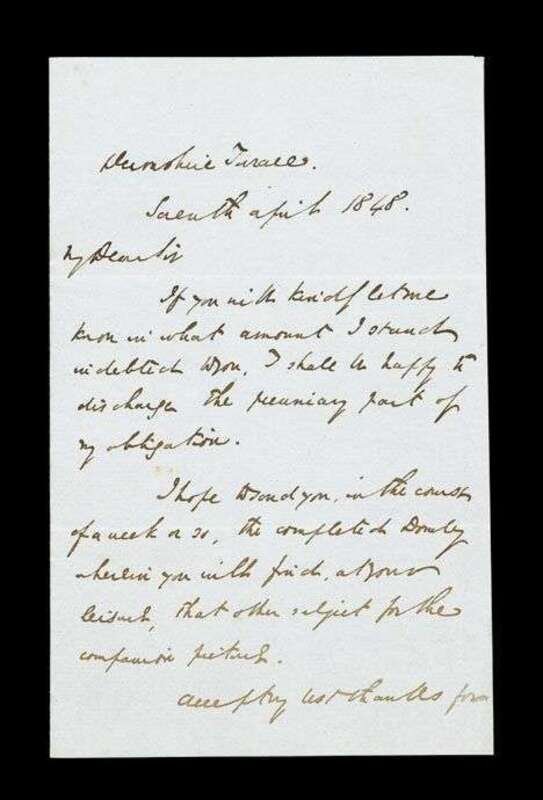 Devonshire Terrace.
Seventh April 1848.
My Dear Sir
If you will kindly let me
know in what amount I stand
indebted to you, I shall be happy to
discharge the pecuniary part of
my obligation.
I hope to send you, in the course
of a week or so, the completed Dombey
wherein you will find, at your
leisure, that other subject for the
companion picture.
Accept my best thanks for